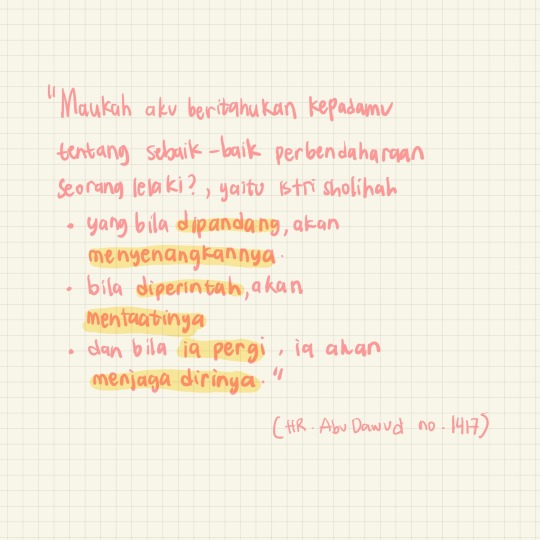 "Maukah aku beritahukan kepadamu
tentang sebaik-baik perbendaharaan
seorang lelaki?, yaitu istri sholihah
• yang bila dipandang, akan
menyenangkannya.
• bila diperintah, akan
mentaatinya
• dan bila ia pergi, ia akan
menjaga dirinya."
(HR. Abu Dawud no. 1417)